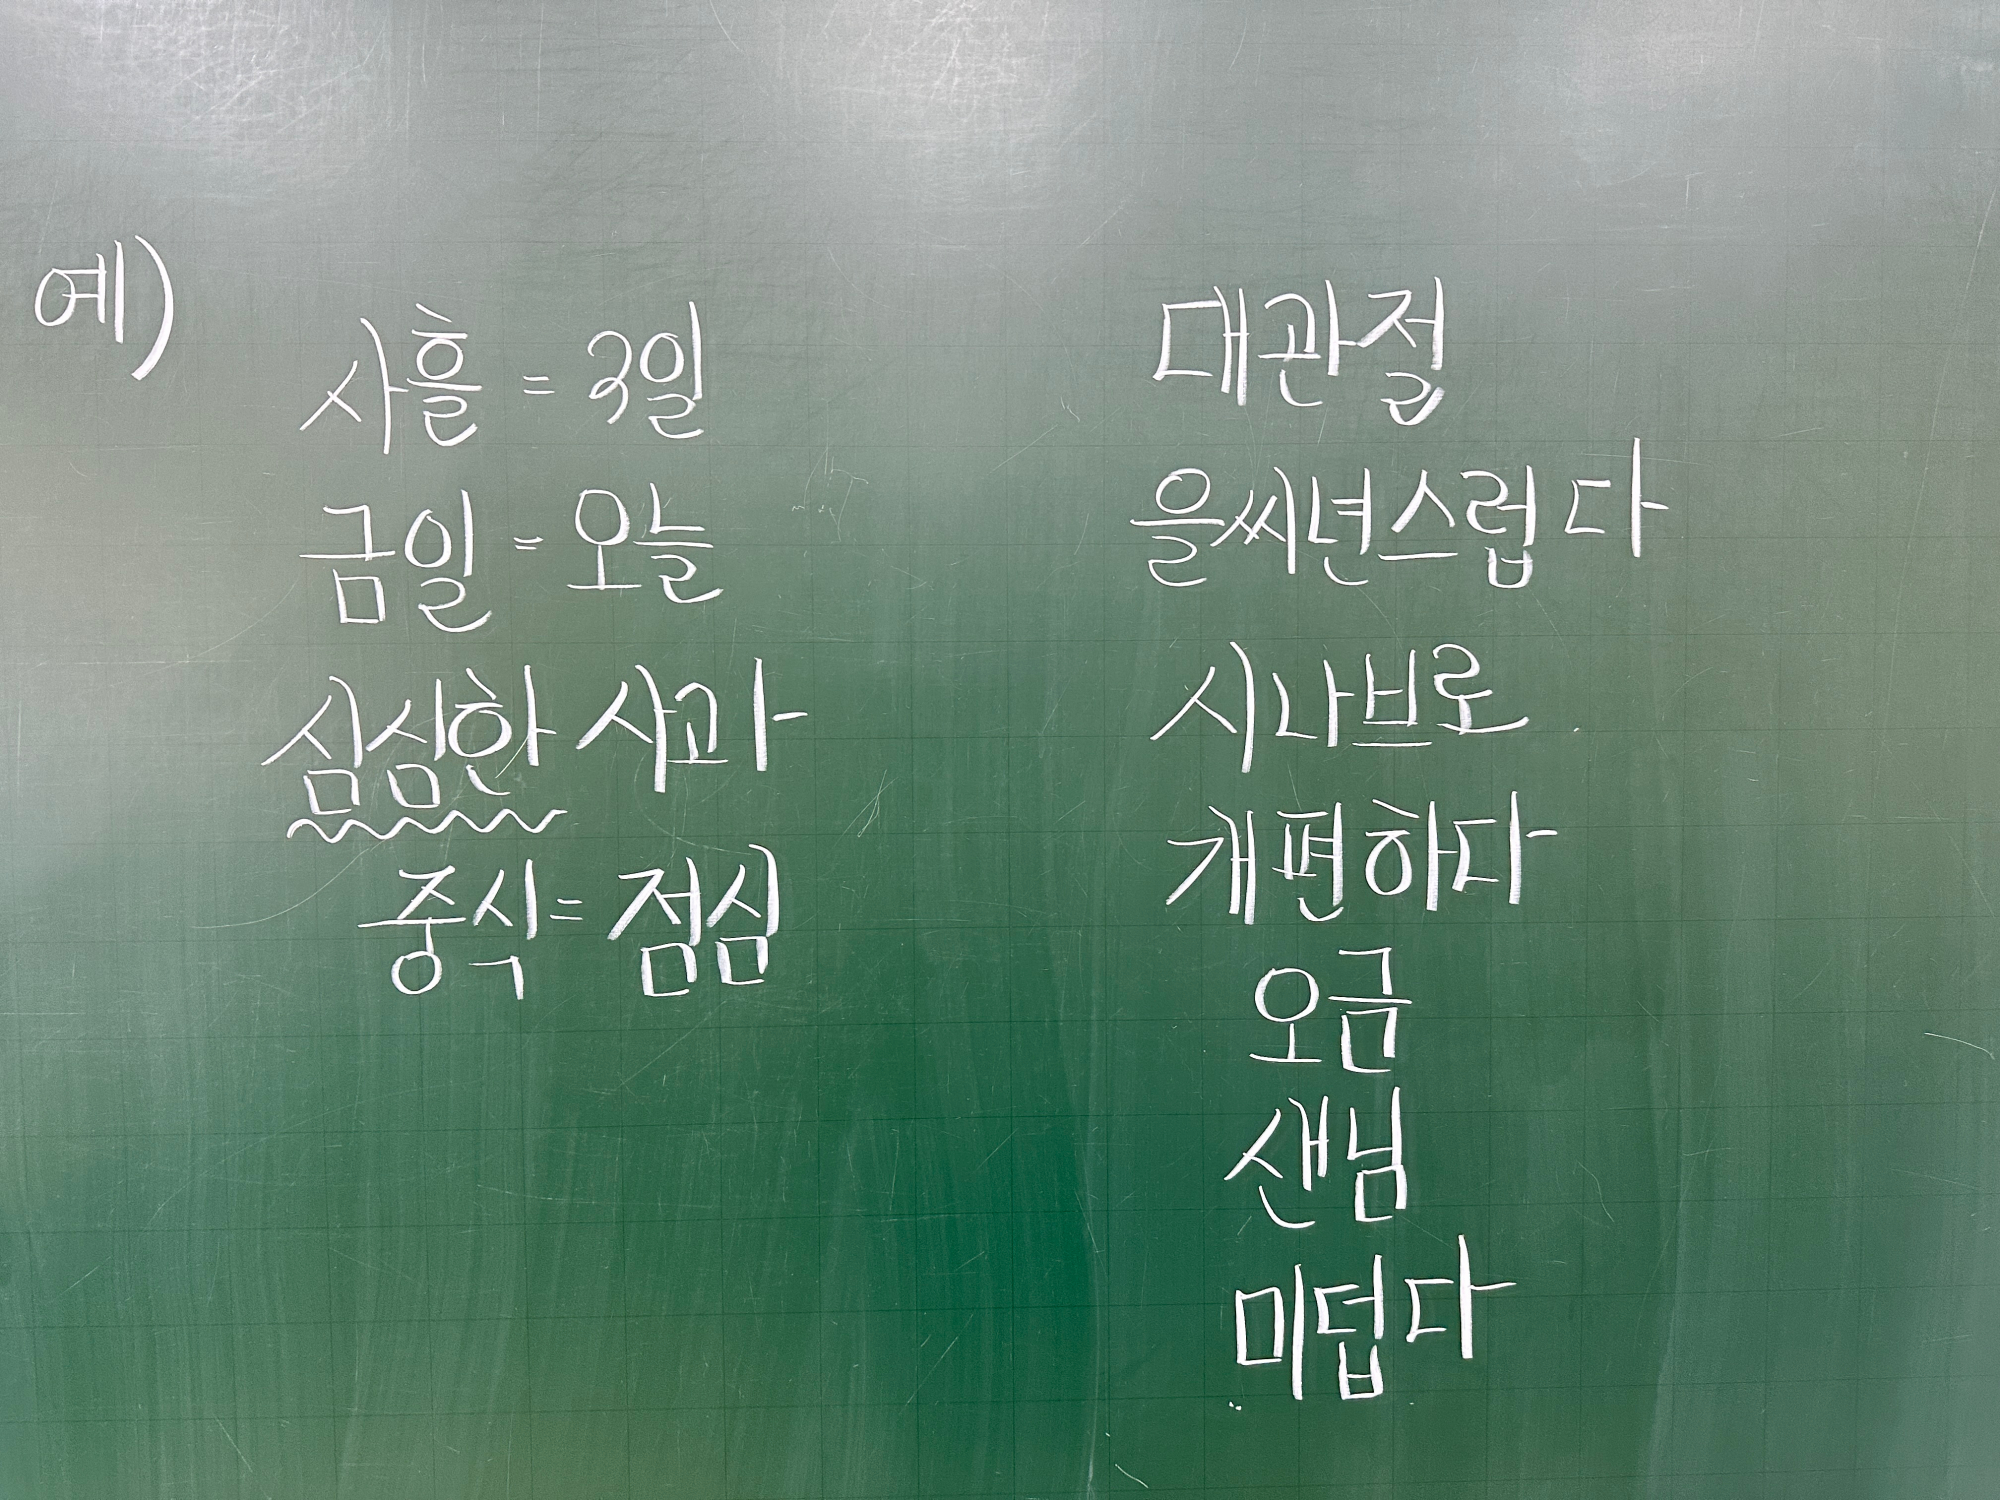 예)
사흘 = 3일
금일 = 오늘
심심한 사과
중식 = 점심
대관절
을씨년스럽다
시나브로
개편하다
오금
샌님
미덥다